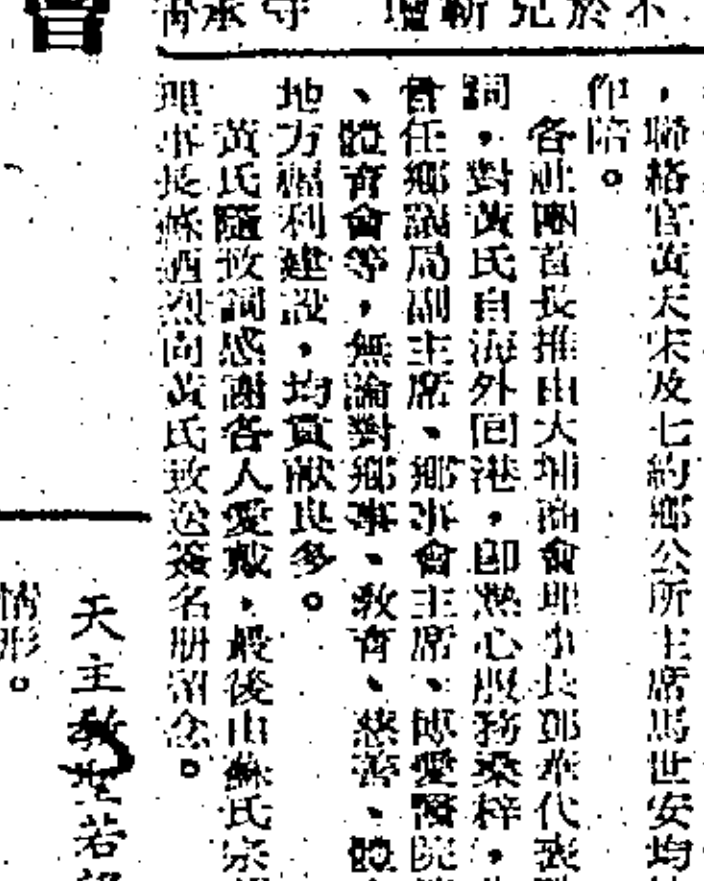 不於兄新壇 守承
，聯絡官黃天宋及七約鄉公所主席馬世安均
作陪。
各社團首長推由大埔商會理事長鄧 代表
詞，對黃氏自海外回港，即熱心服務桑梓，
曾任鄉議局副主席、鄉事會主席、博愛醫院
、體育會等，無論對鄉事、教育、慈善、體
地方福利建設，均貢獻良多。
黃氏隨致詞感謝各人愛戴，最後由蘇氏宗
理事長蘇酒烈向黃氏致送簽名册留念。
會
天主教聖若
情形。